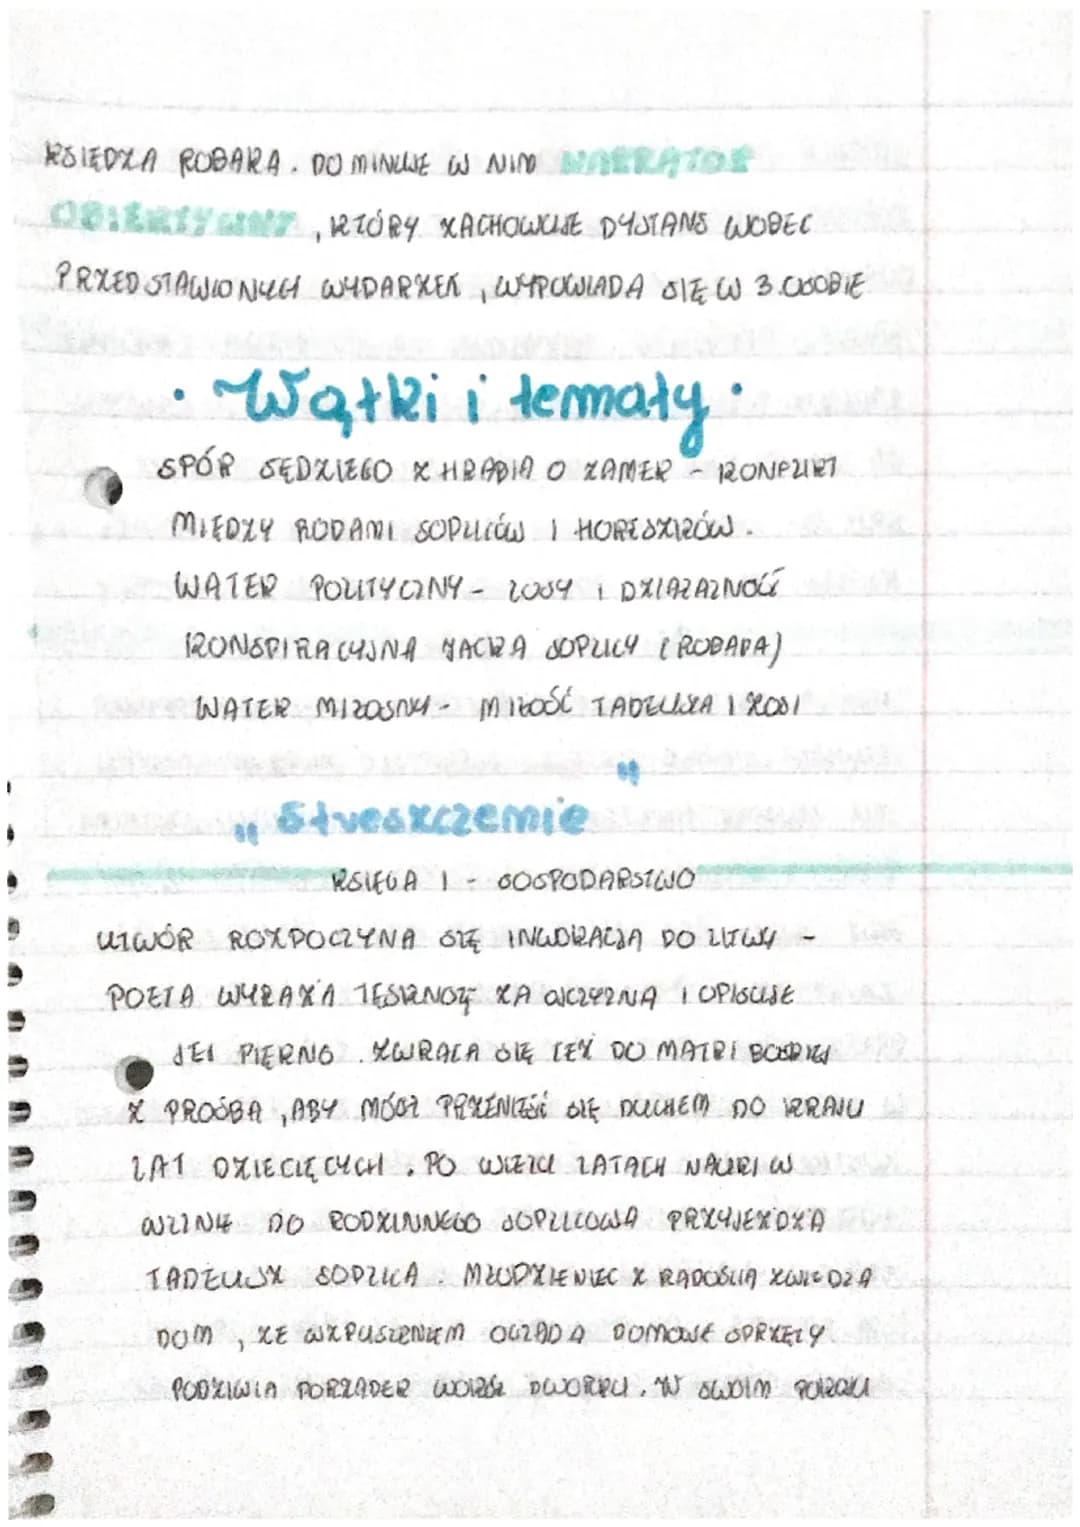 KSIĘDZA ROBAKA. DOMINUJE W NIM NARRATOR
OBIEKTYWNY, KTÓRY ZACHOWUJE DYSTANS WOBEC
PRZEDSTAWIONYCH WYDARZEŃ, WYPOWIADA SIĘ W 3. OSOBIE
• Wątki i tematy •
SPÓR SĘDZIEGO Z HRABIĄ O ZAMEK - KONFLIKT
MIĘDZY RODAMI SOPLICÓW I HORESZKÓW.
WĄTEK POLITYCZNY - LOSY I DZIAŁALNOŚĆ
KONSPIRACYJNA JACKA SOPLICY (ROBAKA)
WĄTEK MIŁOSNY - MIŁOŚĆ TADEUSZA I ZOSI
"Streszczenie"
KSIĘGA I - GOSPODARSTWO
UTWÓR ROZPOCZYNA SIĘ INWOKACJĄ DO LITWY -
POETA WYRAŻA TĘSKNOTĘ ZA OJCZYZNĄ I OPISUJE
JEJ PIĘKNO. ZWRACA SIĘ TEŻ DO MATKI BOSKIEJ
Z PROŚBĄ, ABY MÓGŁ PRZENIEŚĆ SIĘ DUCHEM DO KRAJU
LAT DZIECIĘCYCH. PO WIELU LATACH NAUKI W
WILNIE DO RODZINNEGO SOPLICOWA PRZYJEŻDŻA
TADEUSZ SOPLICA. MŁODZIENIEC Z RADOŚCIĄ ZWIEDZA
DOM, ZE WZRUSZENIEM OGLĄDA DOMOWE SPRZĘTY.
PODZIWIA PORZĄDEK WOKÓŁ DWORKU. W SWOIM POKOJU